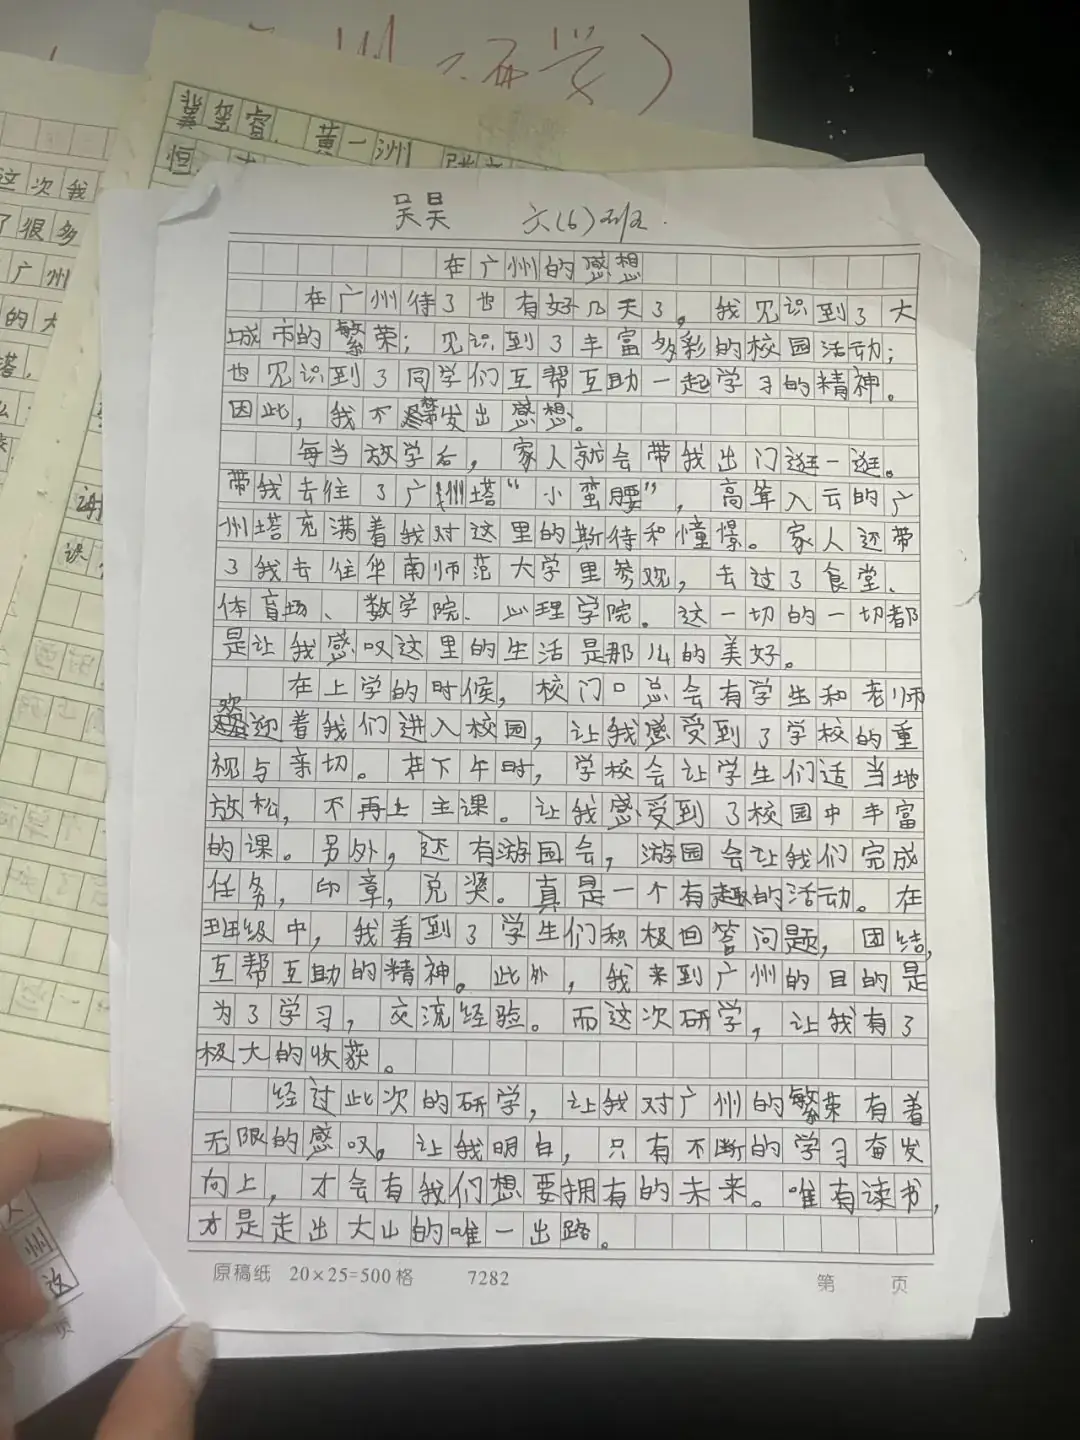 州研学)
冀玺睿 黄一洲
恒
这次我
了很多
广州
的大
塔,
吴昊 六(6)班.
在广州的感想
在广州待了也有好几天了。我见识到了大
城市的繁荣；见识到了丰富多彩的校园活动；
也见识到了同学们互帮互助一起学习的精神。
因此，我不禁发出感想。
每当放学后，家人就会带我出门逛一逛。
带我去往了广州塔“小蛮腰”，高耸入云的广
州塔充满着我对这里的期待和憧憬。家人还带
了我去往华南师范大学里参观，去过了食堂、
体育场、数学院、心理学院。这一切的一切都
是让我感叹这里的生活是那儿的美好。
在上学的时候，校门口总会有学生和老师
欢迎着我们进入校园，让我感受到了学校的重
视与亲切。在下午时，学校会让学生们适当地
放松，不再上主课。让我感受到了校园中丰富
的课。另外，还有游园会，游园会让我们完成
任务，印章，兑奖。真是一个有趣的活动。在
班级中，我看到了学生们积极回答问题，团结，
互帮互助的精神。此外，我来到广州的目的是
为了学习，交流经验。而这次研学，让我有了
极大的收获。
经过此次的研学，让我对广州的繁荣有着
无限的感叹。让我明白，只有不断的学习奋发
向上，才会有我们想要拥有的未来。唯有读书，
才是走出大山的唯一出路。
原稿纸 20×25=500格 7282 第 页
州
这
页